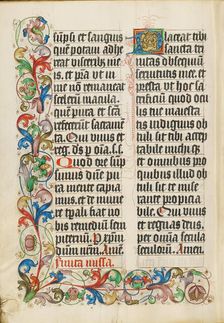 sūpsi et sanguis
quē potaui adhe
reat viscerib; me
is: et pra vt in
me nō remaneat
scelerū macula.
quē pura et scā
refecerūt sacramē
ta. Qui viuis et
reg. ds p oīa. s.s.
Quod ore sūp
simus dnē pu
ra mente capia
mus: et de mune
re tpali fiat no
bis remediū sem
piternū. P xpm
dnm nrm. Amē.
finita missa.
Placeat tibi
sancta tri
nitas obsequi
seruitutis mee. et
presta vt hoc sac
tue maiesta
tis indignus ob
tuli. tibi sit
acceptabile michi
et omnibus pro
quibus illud ob
tuli. sit te mise
rante propiciabile
Qui viuis
et regnas deus.
per omnia secula
seculorum. Amen